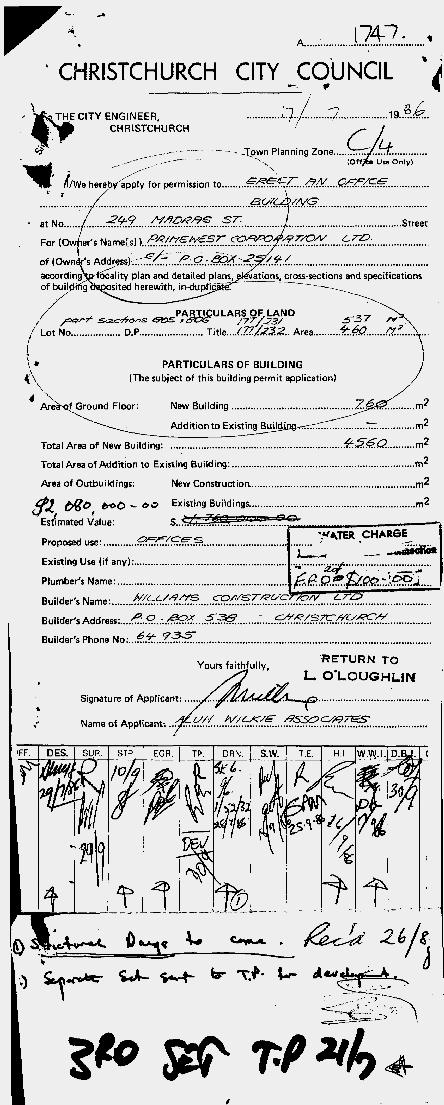 A 1747.
CHRISTCHURCH CITY COUNCIL
THE CITY ENGINEER,
CHRISTCHURCH
17/ 7 1986
Town Planning Zone C/4
(Office Use Only)
I/We hereby apply for permission to ERECT AN OFFICE
BUILDING
at No. 249 MADRAS ST. Street
For (Owner's Name(s)) PRIMEWEST CORPORATION LTD.
of (Owner's Address) C/- P.O. BOX 25141
according to locality plan and detailed plans, elevations, cross-sections and specifications
of building deposited herewith, in-duplicate.
PARTICULARS OF LAND
part sections 805, 806 177/231 537 M2
Lot No. D.P. Title 177/232 Area 460 M2
PARTICULARS OF BUILDING
(The subject of this building permit application)
Area of Ground Floor: New Building 760 m2
Addition to Existing Building — m2
Total Area of New Building: 4560 m2
Total Area of Addition to Existing Building: m2
Area of Outbuildings: New Construction m2
$2,080,000-00 Existing Buildings m2
Estimated Value: $
Proposed use: OFFICES
WATER CHARGE
Existing Use (if any):
Plumber's Name:
Builder's Name: WILLIAMS CONSTRUCTION LTD
Builder's Address: P.O. BOX 538 - CHRISTCHURCH
Builder's Phone No: 64 935
Yours faithfully,
RETURN TO
L O'LOUGHLIN
Signature of Applicant:
Name of Applicant: WILKIE ASSOCIATES
FF. DES. SUR. STP EGR. TP. DRN. S.W. T.E. H.I W.W.I. D.B.I.
10/9
DEV
25.9.86
30/9
29/9
① Structural Dwgs to come. Rec'd 26/8
Separate Set sent to T.P. for
3RD SET T.P 21/7